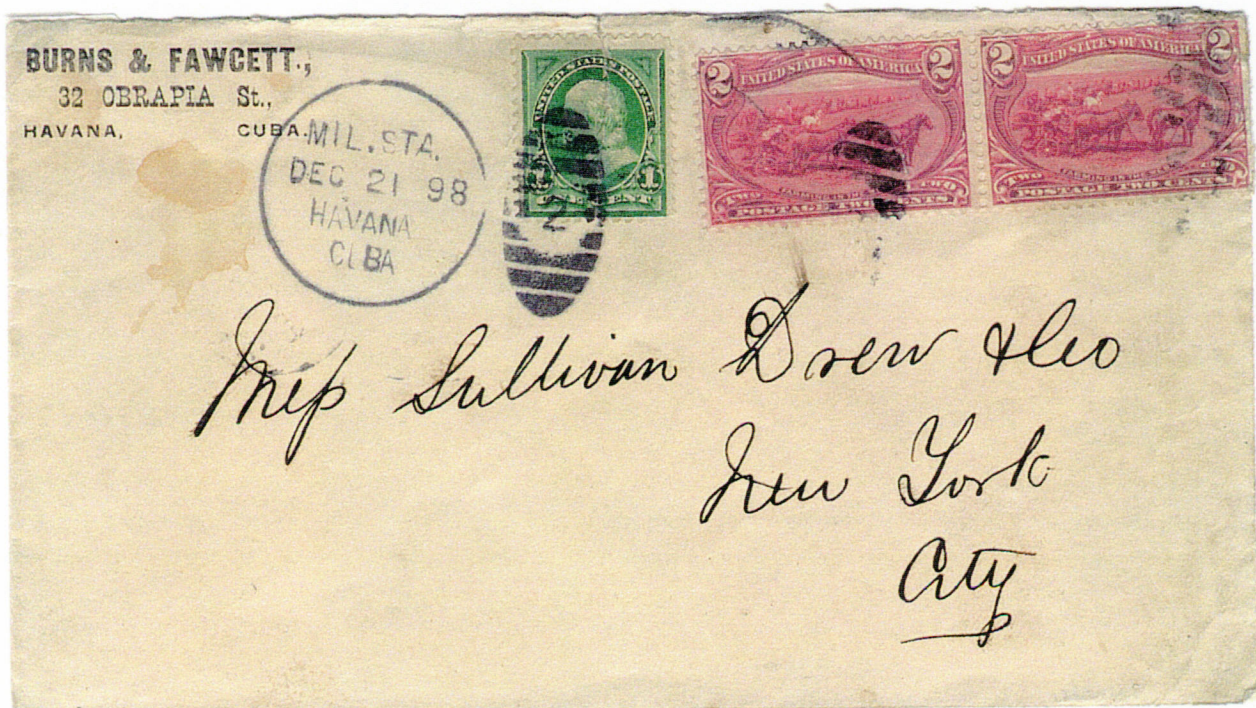 BURNS & FAWCETT.,
32 OBRAPIA St.,
HAVANA, CUBA.
MIL. STA.
DEC 21 98
HAVANA
CUBA
UNITED STATES POSTAGE
1 1
ONE CENT
2
2 UNITED STATES OF AMERICA 2
FARMING IN THE
TWO TWO
POSTAGE TWO CENTS
2 UNITED STATES OF AMERICA 2
FARMING IN THE WEST
TWO
POSTAGE TWO CENTS
Mess Sullivan Drew & Co
New York
City